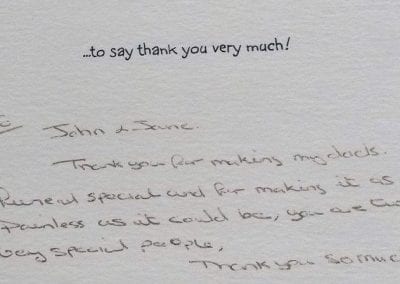 ...to say thank you very much!
John & Jane.
Thank you for making my dads.
Funeral special and for making it as
Painless as it could be, you are two
very special people,
Thank you so much